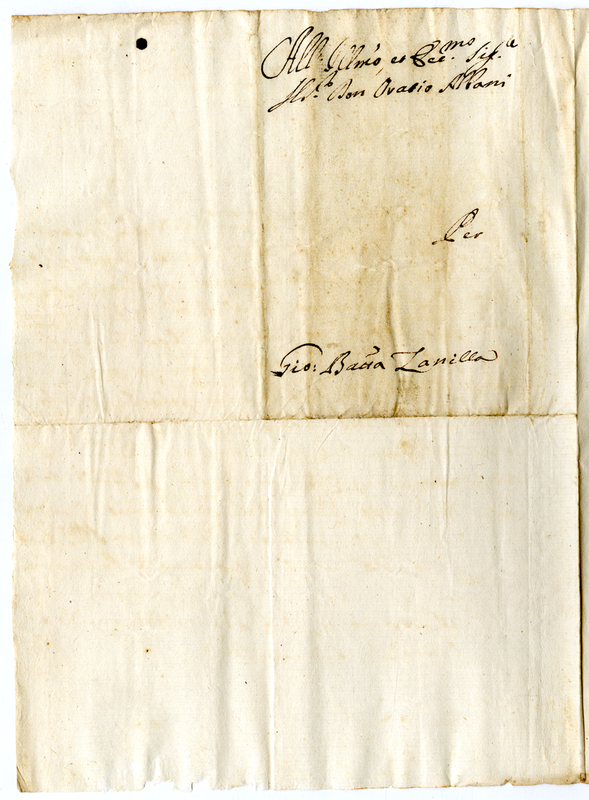 All: Illmo, et Ecc.mo Sig.re
Il Sig.r Don Oratio Albani
Per
Gio: Batta Zanilla